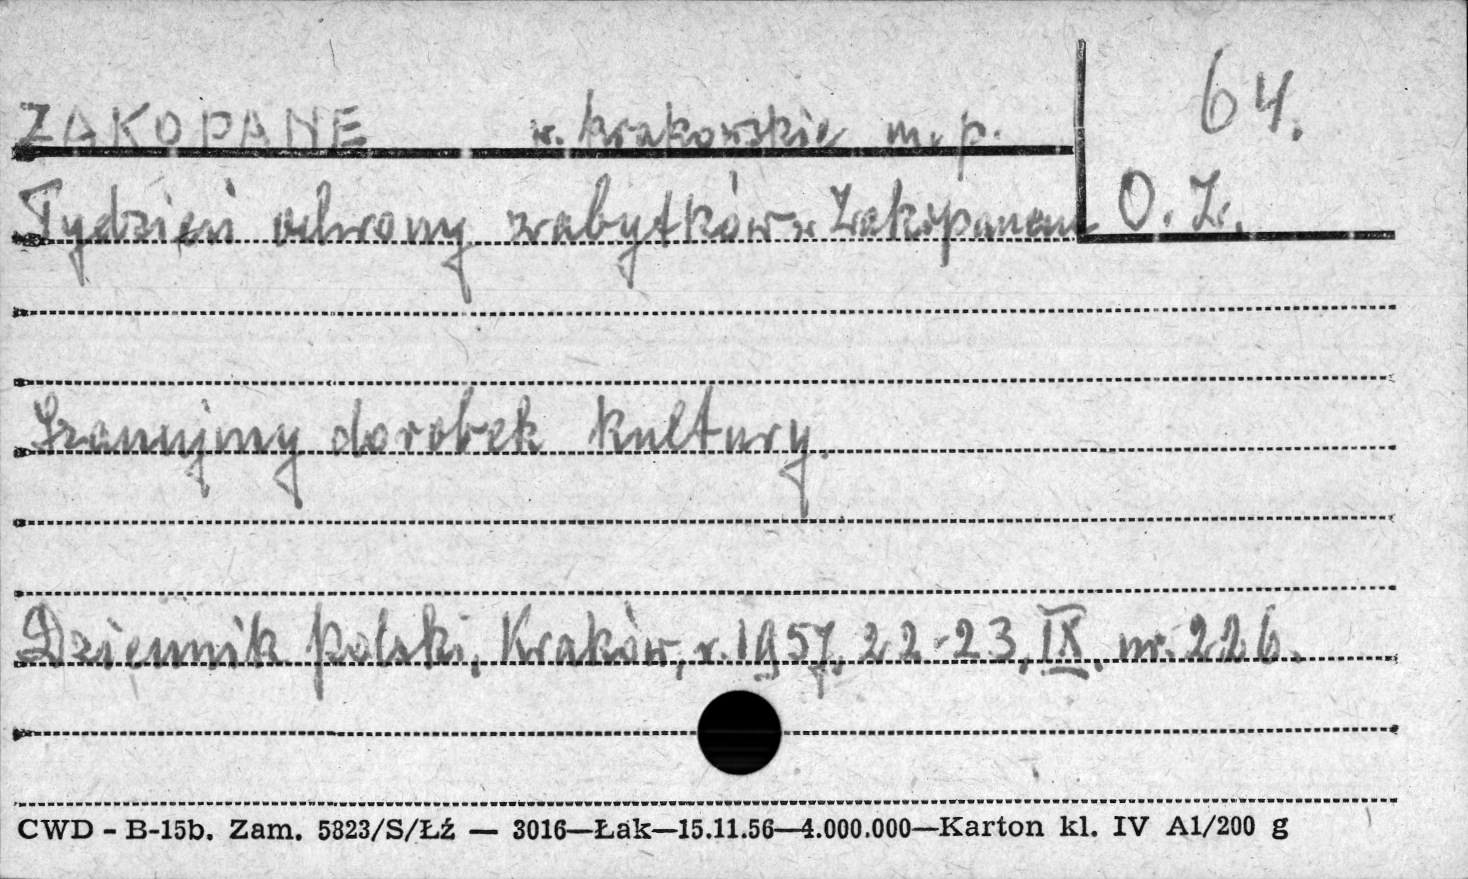 64.
ZAKOPANE w. krakowskie m. p.
O. Z.
Tydzień ochrony zabytków w Zakopanem
Szanujmy dorobek kultury.
Dziennik Polski, Kraków, r. 1957, 22-23, IX. nr. 226.
CWD - B-15b. Zam. 5823/S/Łź — 3016—Łak—15.11.56—4.000.000—Karton kl. IV A1/200 g